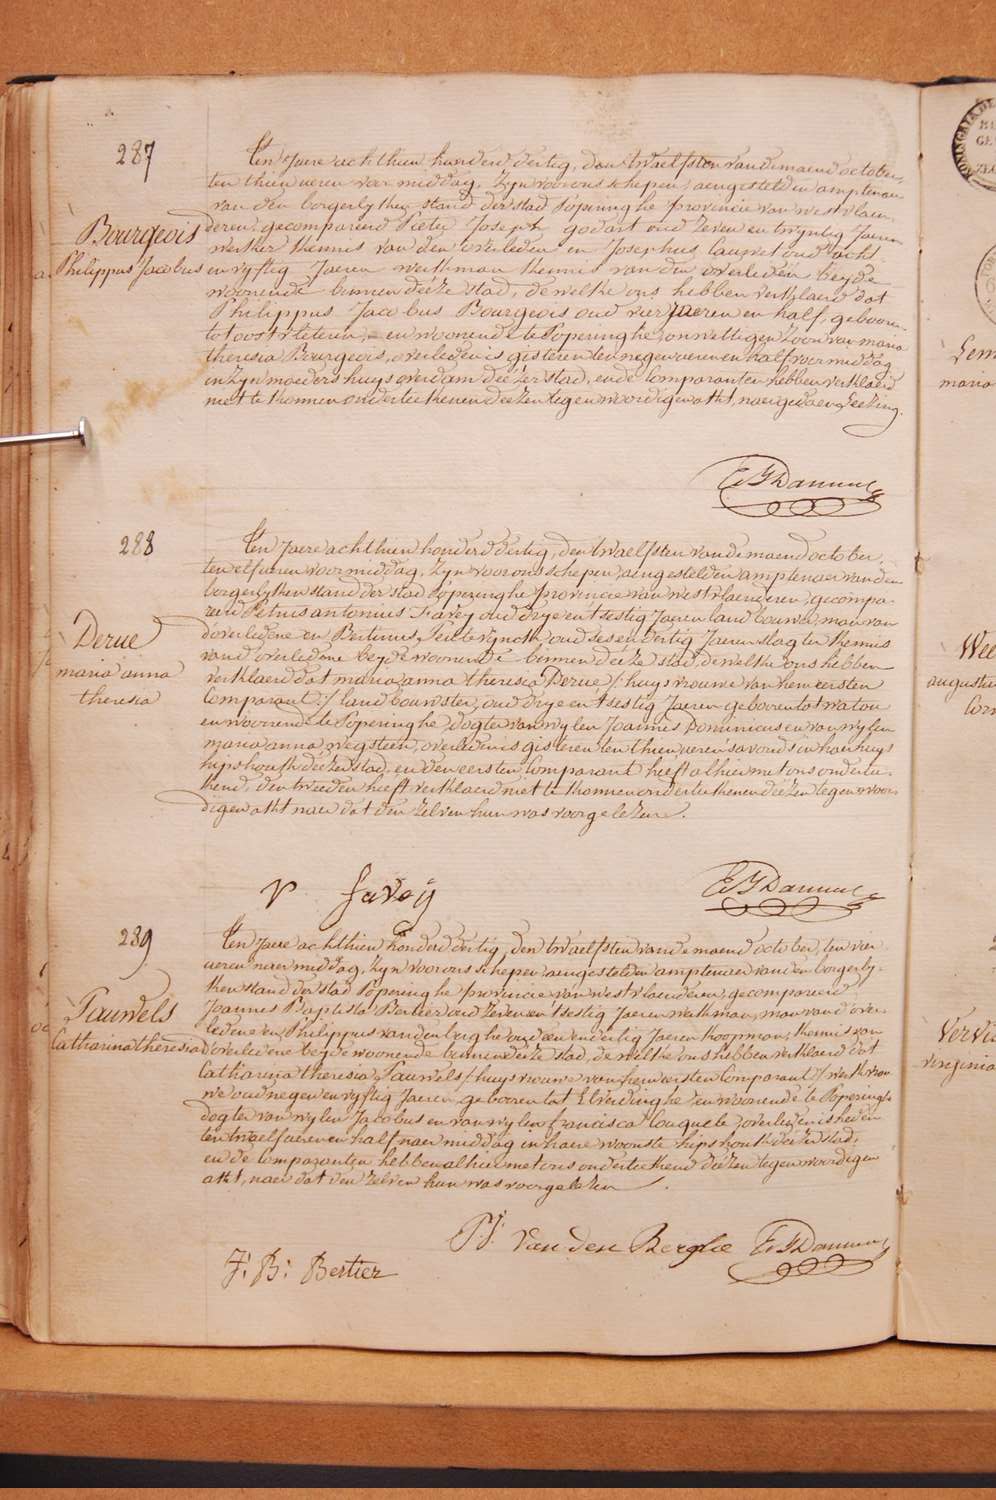 287
Bourgeois
Philippus Jacobus
Ten Jaere achthien honderd dertig, den twaelfsten van de maend october,
ten thien ueren voor middag, zyn voor ons schepen, aengestelden amptenaer
van den borgerlyken stand der stad Poperinghe provincie van westvlaen-
deren, gecompareerd Pieter Joseph godart oud zeven en twyntig Jaeren
werker kennis van den overleden en Josephus Cauvet oud acht
en vyftig Jaeren werkman kennis van den overleden beyde
woonende binnen deéze stad, de welke ons hebben verklaerd dat
Philippus Jacobus Bourgeois oud vier Jaeren en half, geboren
tot oostvleteren, en woonende te Poperinghe, onwettigen zoon van maria
theresia Bourgeois, overleden is gisteren ten negen ueren en half voor middag
in zyn moeders huys overdam deézer stad, en de Comparanten hebben verklaerd
niet te konnen onderteekenen deézen tegenwoordigen akt, naer gedaen Leézing.
288
Derue
maria anna
theresia
Ten Jaere achthien honderd dertig, den twaelfsten van de maend october
ten elf ueren voor middag, zyn voor ons schepen, aengestelden amptenaer van den
borgerlyken stand der stad Poperinghe provincie van westvlaenderen, gecompa-
reerd Petrus antonius Favey oud drye en tsestig Jaeren landbouwer, man van
d'overledene en Pertinus oud ses en dertig Jaeren slagter kennis
van d'overledene beyde woonende binnen deéze stad, de welke ons hebben
verklaerd dat maria anna theresia Derue /: huysvrouwe van hem eersten
Comparant :/ landbouwster, oud drye en tsestig Jaeren geboren tot watou
en woonende te Poperinghe, dogter van wylen Joannes Dominicus en van wylen
maria anna wegsteen, overleden is gisteren ten thien ueren savonds in haer huys
hipshouk deézer stad, en den eersten Comparant heeft alhier met ons onderteé-
kend, den tweeden heeft verklaerd niet te konnen onderteekenen deézen tegenwoor-
digen akt naer dat den zelven hun was voorgelezen.
P favey
289
Pauwels
Catharina theresia
Ten Jaere achthien honderd dertig, den twaelfsten van de maend october, ten vier
ueren naer middag, zyn voor ons schepen, aengestelden amptenaer van den borgerly-
ken stand der stad Poperinghe provincie van westvlaenderen, gecompareerd
Joannes Baptista Bertier oud zeven en tsestig Jaeren werkman, man van d'over-
ledene en Philippus vandenberghe oud een en dertig Jaeren koopman, kennis van
d'overledene beyde woonende binnen deéze stad, de welke ons hebben verklaerd dat
Catharina theresia Pauwels /: huysvrouwe van hem eersten Comparant :/ werkvrou-
we oud negen en vyftig Jaeren, geboren tot Elverdinghe, en woonende te Poperinghe
dogter van wylen Jacobus en van wylen francisca Couquele, overleden is heden
ten twaelf ueren en half naer middag in haere woonste hipshouk deézer stad,
en de Comparanten hebben alhier met ons onderteekend deézen tegenwoordigen
akt, naer dat den zelven hun was voorgelezen.
P.J. Van den Berghe
J: B: Bertier
maria
Wee
augustin
Vervi
virginia